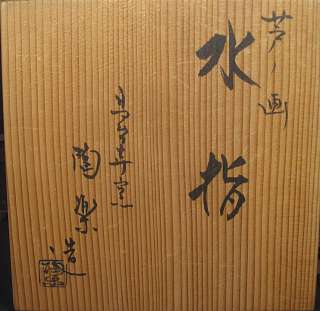 芦ノ画
水指
窯
陶楽造